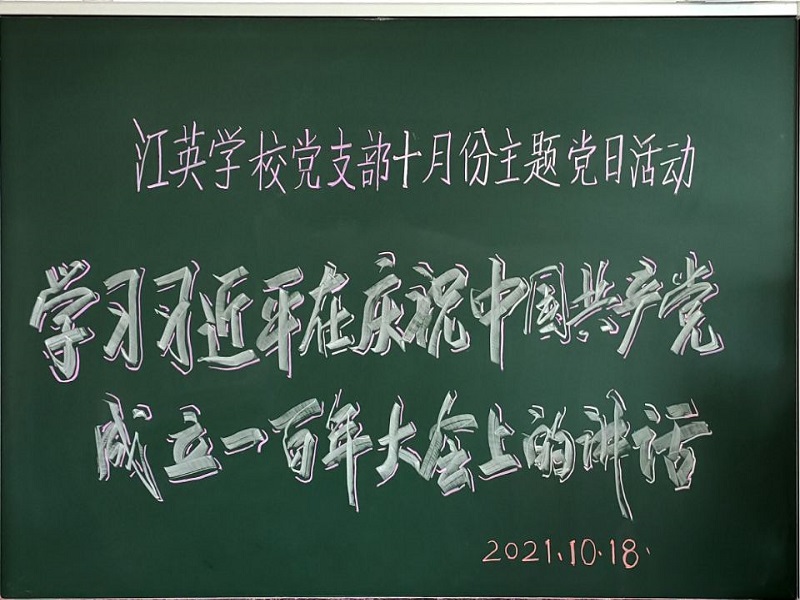 江英学校党支部十月份主题党日活动
学习习近平在庆祝中国共产党
成立一百年大会上的讲话
2021.10.18.